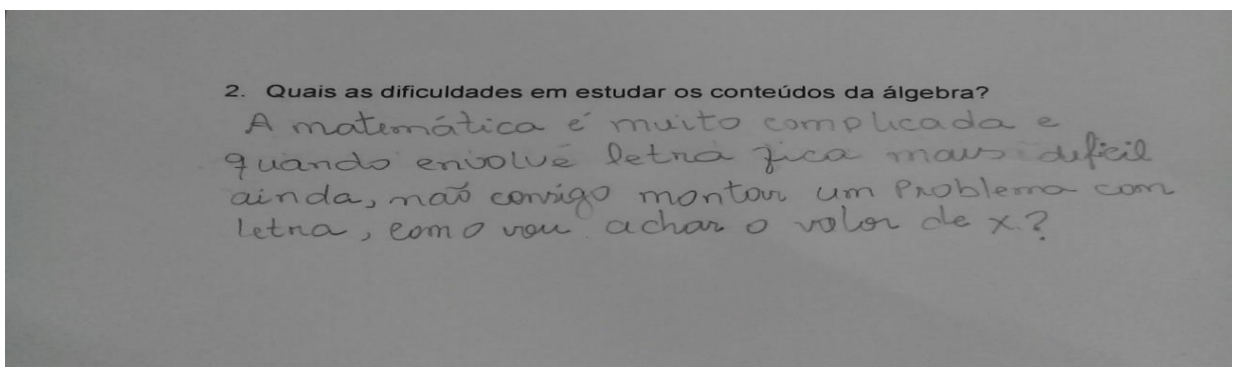 2. Quais as dificuldades em estudar os conteúdos da álgebra?
A matemática é muito complicada e
quando envolve letra fica mais dificil
ainda, não consigo montar um problema com
letra, como vou achar o valor de x?